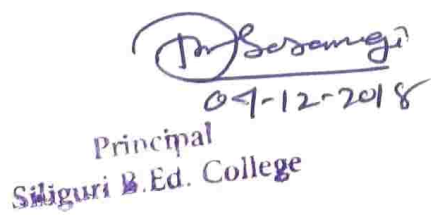 04-12-2018
Principal
Siliguri B.Ed. College